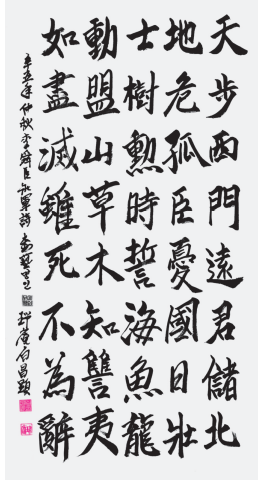 天步西門遠君儲北
地危孤臣憂國日壯
士樹勳時誓海魚龍
動盟山草木知讐夷
如盡滅雖死不為辭
辛丑年仲秋李舜臣 詩 白昌顯